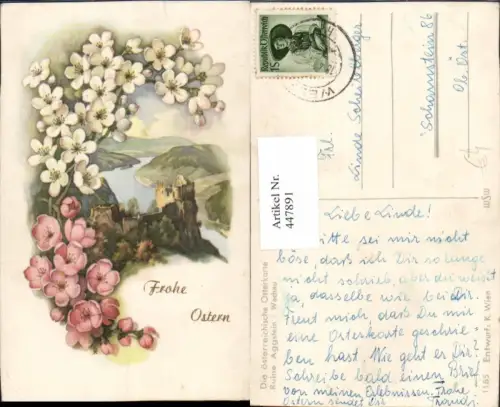 Frohe
Ostern
Republik Österreich
15
Artikel Nr.
447891
Frl.
Linde
Scharnstein 86
Ob. Öst.
Liebe Linde!
Bitte sei mir nicht
böse, daß ich Dir so lange
nicht schrieb, aber du weißt
ja, dasselbe wie bei dir.
Freut mich, daß Du mir
eine Osterkarte geschrie-
ben hast. Wie geht es Dir?
Schreibe bald einen Brief
von meinen Erlebnissen. Frohe
Ostern sendet dir
Die österreichische Osterkarte
Ruine Aggstein Wachau
1185 Entwurf: K. Wien